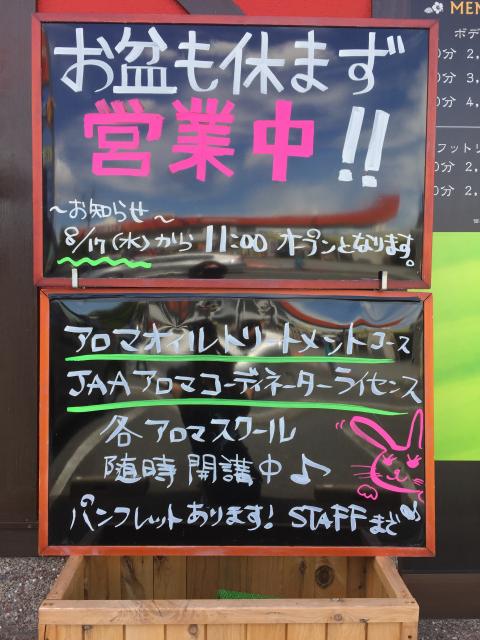 お盆も休まず
営業中!!
～お知らせ～
8/17(水)から 11:00 オープンとなります。
アロマオイルトリートメントコース
JAAアロマコーディネーターライセンス
各アロマスクール
随時開講中♪
パンフレットあります! STAFFまで
MEN
ボデ
0分 2,
0分 3,
0分 4,
フットリ
0分 2,
0分 2,